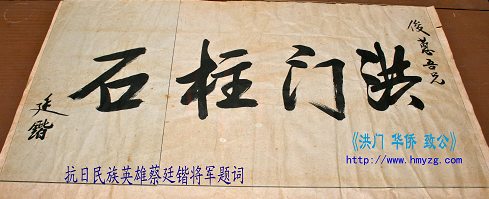 俊吾兄
洪门柱石
廷鍇
《洪门 华侨 致公》
http://www.hmyzg.com/
抗日民族英雄蔡廷锴将军题词